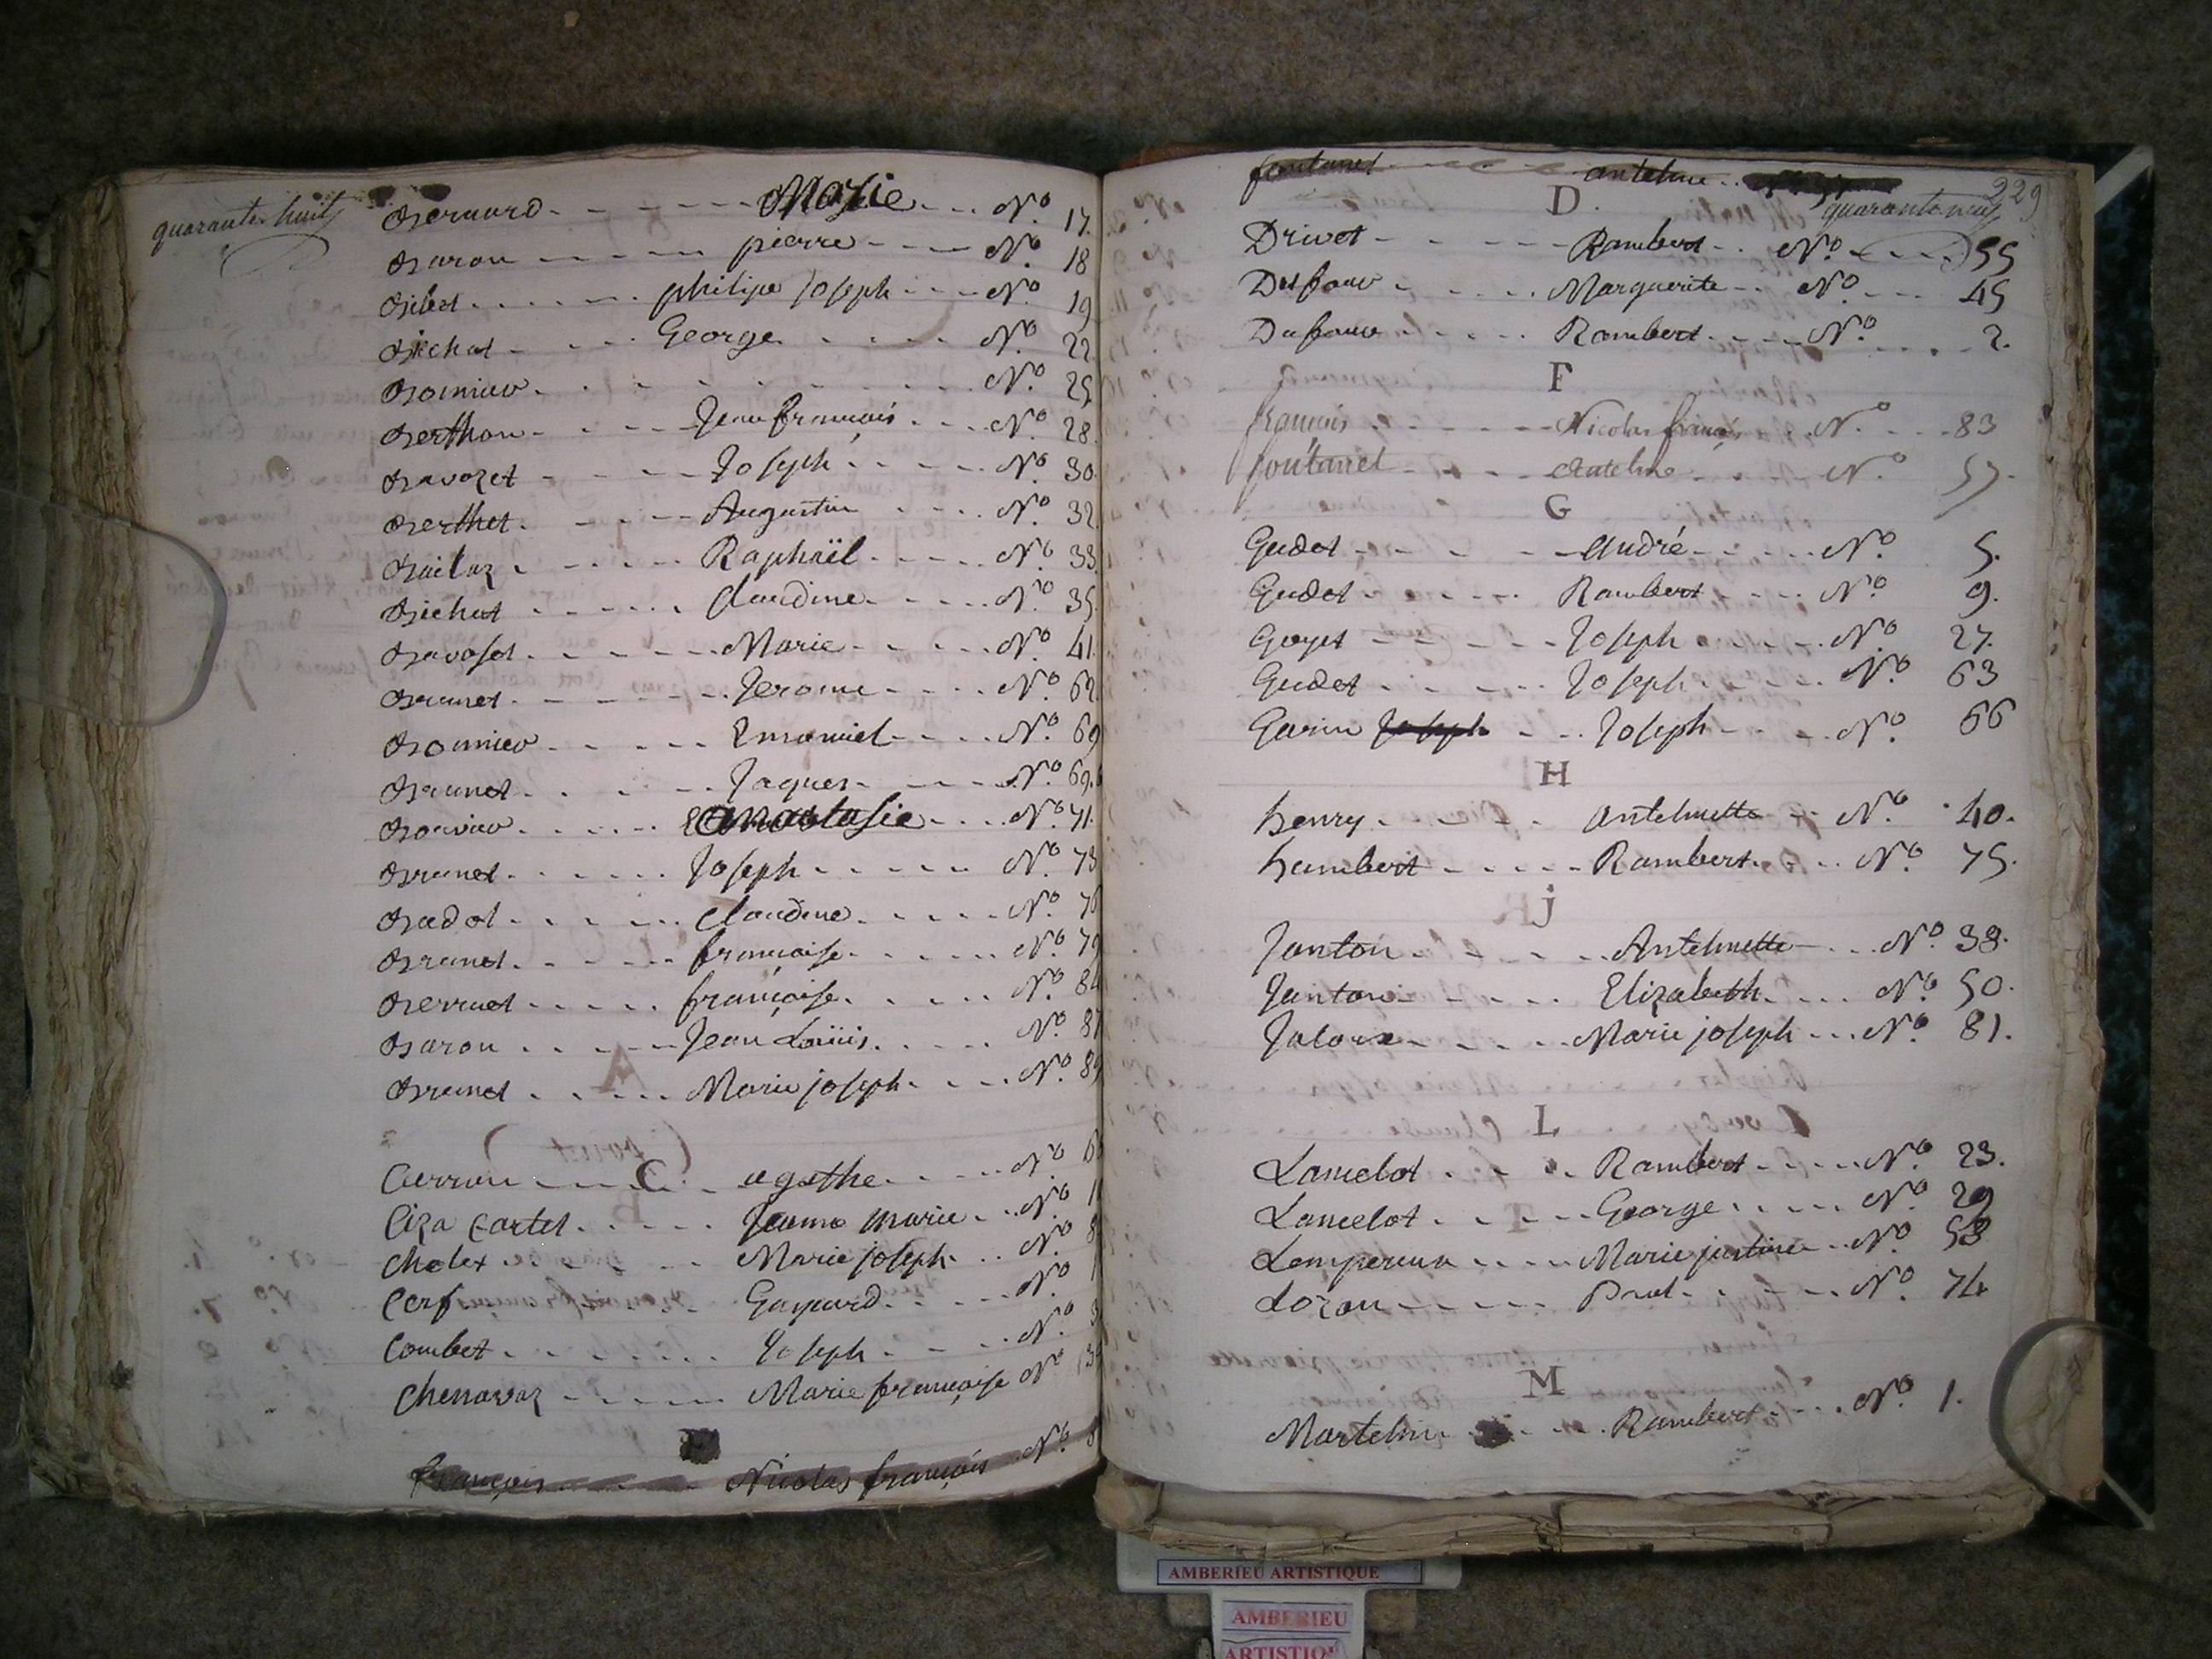 quarante huit
Bernard - - - - - Marie - - - N.º 17.
Baron - - - - - pierre - - - - N.º 18
Bilet - - - - - philipe Joseph - - - N.º 19
Bichat - - - - George - - - - N.º 22
Bonnier - - - - - - - - N.º 25
Berthon - - - - Jean françois - - - N.º 28.
Bavozet - - - - Joseph - - - - N.º 30
Berthet - - - - Augustin - - - - N.º 32
Bailaz - - - - Raphaël - - - - N.º 33
Bichat - - - - Claudine - - - - N.º 35
Bavoset - - - - Marie - - - - N.º 41.
Brunet - - - - Jerome - - - - N.º 62
Bonnier - - - - Emaniel - - - - N.º 69
Brunet - - - - Jaques - - - - N.º 69.
Bonnier - - - - Anastasie - - - - N.º 71.
Brunet - - - - Joseph - - - - N.º 73
Badot - - - - Claudine - - - - N.º 76
Brunet - - - - francoise - - - - N.º 79
Bernet - - - - françoise - - - - N.º 84
Baron - - - - Jean Loüis - - - - N.º 87
Brunet - - - - Marie joseph - - - - N.º 89
C
Carron - - - - agathe - - - - N.º 6
Ciza Cartet - - - - Jeanne Marie - - N.º 1
Cholex - - - - Marie joseph - - N.º 8
Cerf - - - - Gaspard - - - - N.º
Combet - - - - Joseph - - - N.º 3
Chenavaz - - - - Marie françoise N.º 3
françois - - - - Nicolas françois N.º 8
fontanel - - - - antelme
229
D.
quarante neuf
Drivet - - - - Rambert - - N.º - - - 55
Dufour - - - - Marguerite - - N.º - - 45
Dufour - - - - Rambert - - - N.º - - 2.
F
françois - - - - Nicolas françois N.º - - - 83
fontanel - - - - Antelme - - N.º 57.
G
Gudet - - - - André - - - - N.º 5.
Gudet - - - - Rambert - - - - N.º 9.
Goyet - - - - Joseph - - - - N.º 27.
Gudet - - - - Joseph - - - - N.º 63
Garin Joseph - - Joseph - - - N.º 66
H
henry - - - - Antelmette - - N.º 40.
humbert - - - - Rambert - - - N.º 75.
j
Janton - - - - Antelmette - - - N.º 38.
Janton - - - - Elizabeth - - - N.º 50.
Jaloux - - - - Marie joseph - - - N.º 81.
L
Lancelot - - - - Rambert - - - - N.º 23.
Lancelot - - - - George - - - - N.º 29
Lempereur - - - - Marie justine - - N.º 53
Lozan - - - - Prat - - - - N.º 74
M
Martelin - - - - Rambert - - - N.º 1.
AMBERIEU ARTISTIQUE
AMBERIEU
ARTISTIQU